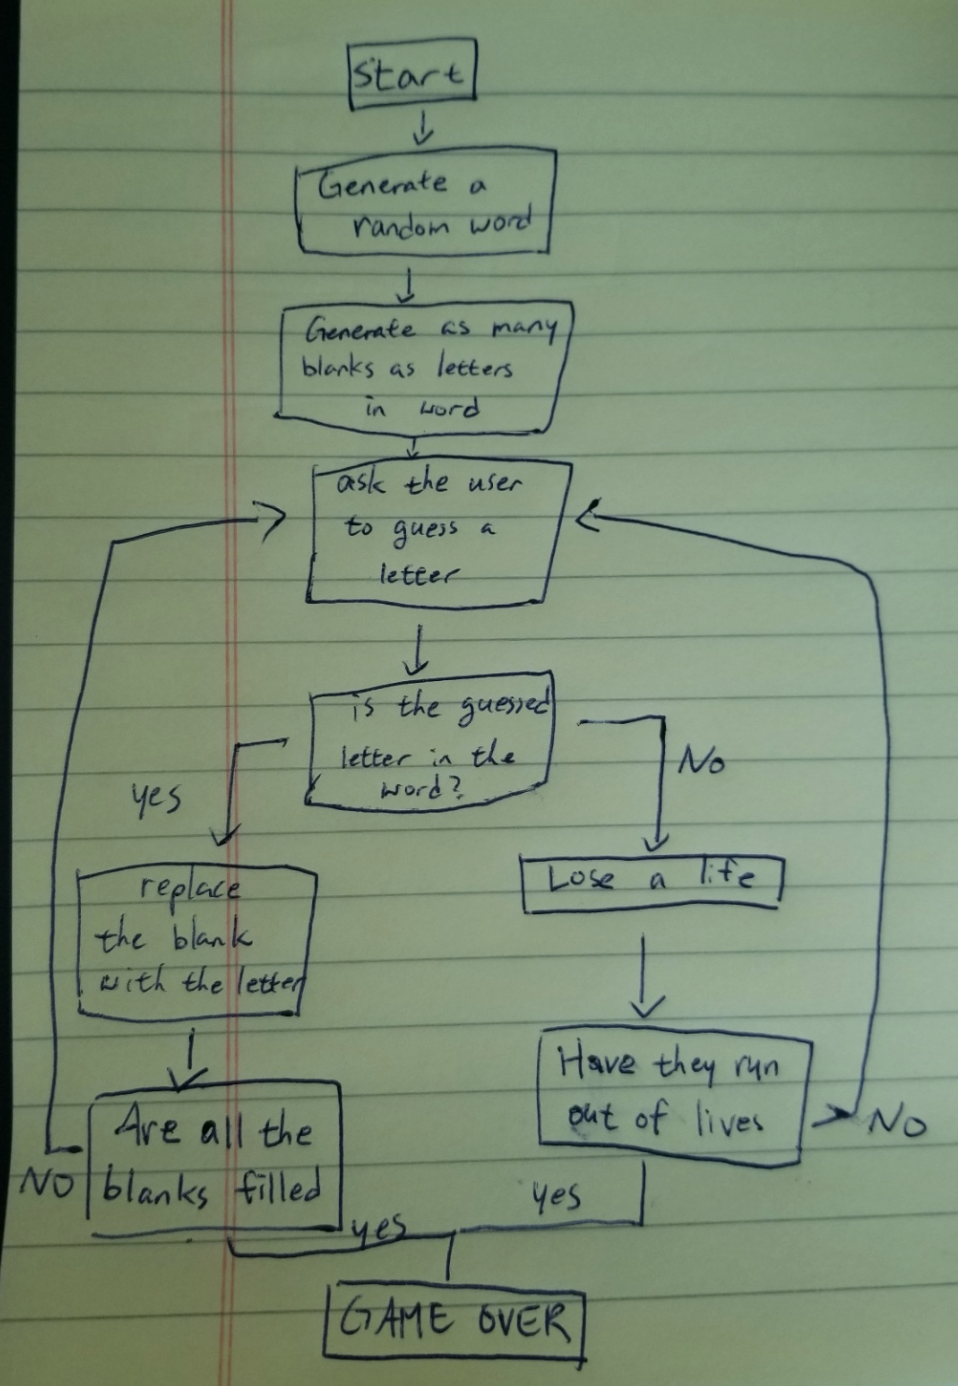 Start
Generate a
random word
Generate as many
blanks as letters
in word
ask the user
to guess a
letter
is the guessed
letter in the
word?
yes
No
replace
the blank
with the letter
Lose a life
Have they run
out of lives
No
Are all the
blanks filled
No
yes
yes
GAME OVER